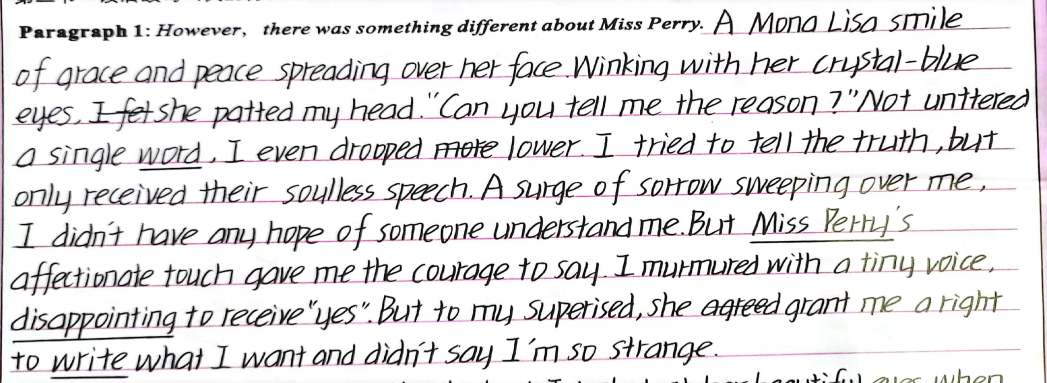 Paragraph 1: However, there was something different about Miss Perry. A Mona Lisa smile
of grace and peace spreading over her face. Winking with her crystal-blue
eyes, I fet she patted my head. "Can you tell me the reason?" Not unttered
a single word, I even drooped more lower. I tried to tell the truth, but
only received their soulless speech. A surge of sorrow sweeping over me,
I didn't have any hope of someone understand me. But Miss Perry's
affectionate touch gave me the courage to say. I murmured with a tiny voice,
disappointing to receive "yes". But to my superised, she agreed grant me a right
to write what I want and didn't say I'm so strange.
beautiful eyes when